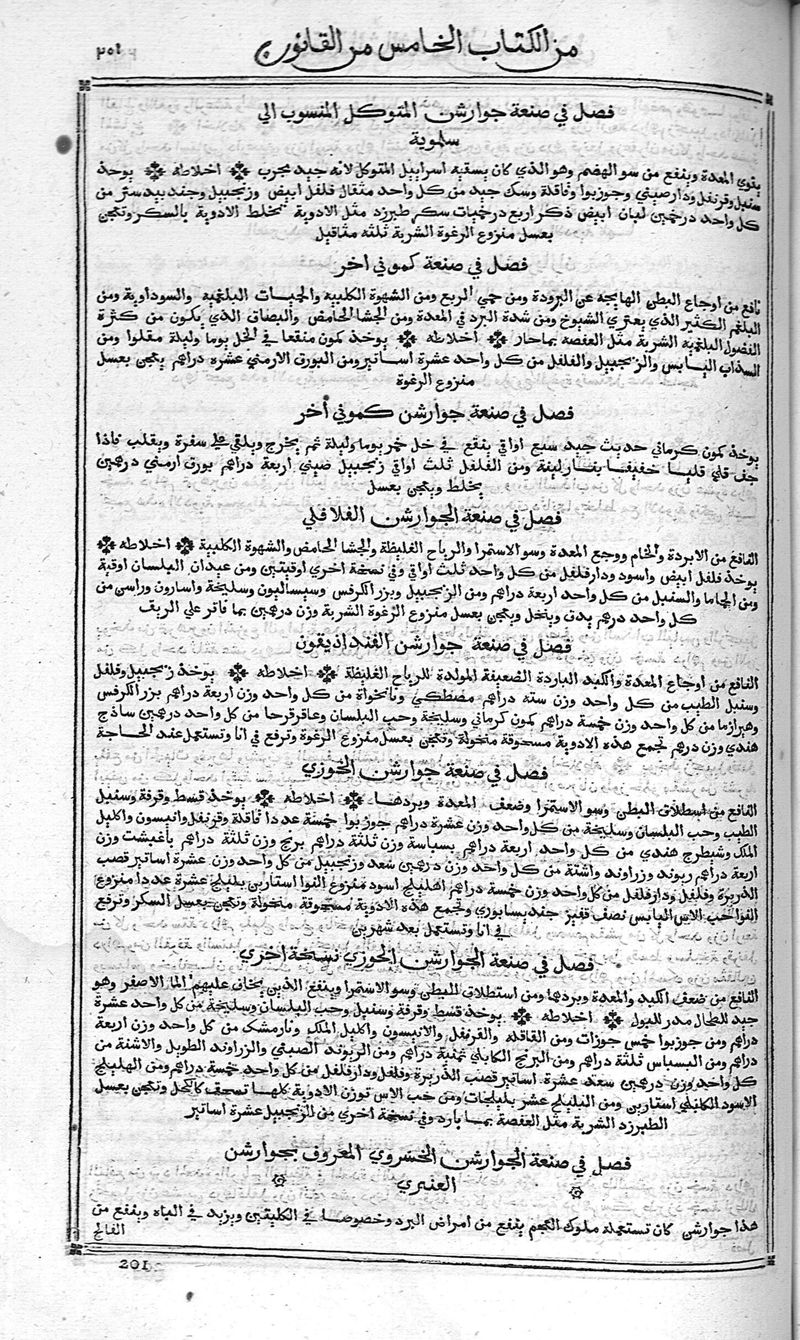 من الكتاب الخامس من القانون
٢٠١
فصل في صنعة جوارشن المتوكل المنسوب الى
سلموية
يقوي المعدة وينفع من سو الهضم وهو الذي كان يسقيه اسراييل المتوكل لانه جيد مجرب ❉ اخلاطه ❉ يوخذ
سنبل وقرنفل ودارصيني وجوزبوا وقاقلة وسك جيد من كل واحد مثقال فلفل ابيض وزنجبيل وجندبيدستر من
كل واحد درخمين لبان ابيض ذكر اربع درخميات سكر طبرزد مثل الادوية تخلط الادوية بالسكر وتعجن
بعسل منزوع الرغوة الشربة ثلثه مثاقيل
فصل في صنعة كموني اخر
نافع من اوجاع البطن الهايجه عن البرودة ومن حمي الربع ومن الشهوة الكلبيه والحميات البلغميه والسوداوية ومن
البلغم الكثير الذي يعتري الشيوخ ومن شدة البرد في المعدة ومن الجشا الحامض والبصاق الذي يكون من كثرة
الفضول البلغمية الشربة مثل العفصة بماحار ❉ اخلاطه ❉ يوخذ كمون منقعا في الخل يوما وليلة مقلوا ومن
السذاب اليابس والزنجبيل والفلفل من كل واحد عشرة اساتير ومن البورق الارمني عشره دراهم يعجن بعسل
منزوع الرغوة
فصل في صنعة جوارشن كموني أخر
يوخذ كمون كرماني حديث جيد سبع اواقي ينقع في خل خمر يوما وليلة ثم يخرج ويلقي علي سفرة ويقلب فاذا
جف قلي قليا خفيفا بنار لينة ومن الفلفل ثلث اواقي زنجبيل صيني اربعة دراهم بورق ارمني درهمين
يخلط ويعجن بعسل
فصل في صنعة الجوارشن الفلافلي
النافع من الابردة والخام ووجع المعدة وسو الاستمرا والرياح الغليظة والجشا الحامض والشهوة الكلبية ❉ اخلاطه ❉
يوخذ فلفل ابيض واسود ودارفلفل من كل واحد ثلث اواقي وفي نسخة اخري اوقيتين ومن عيدان البلسان اوقية
ومن الحماما والسنبل من كل واحد اربعة دراهم ومن الزنجبيل وبزر الكرفس وسيساليون وسليخة واسارون وراسن من
كل واحد درهم يدق وينخل ويعجن بعسل منزوع الرغوة الشربة وزن درهمين بما فاتر علي الريق
فصل في صنعة جوارشن الفنداذيقون
النافع من اوجاع المعدة والكبد الباردة الضعيفة المولدة للرياح الغليظة ❉ اخلاطه ❉ يوخذ زنجبيل وفلفل
وسنبل الطيب من كل واحد وزن سته دراهم مصطكي ونانخواة من كل واحد وزن اربعة دراهم بزر الكرفس
وهيرازما من كل واحد وزن خمسة دراهم كمون كرماني وسليخة وحب البلسان وعاقرقرحا من كل واحد درهمين ساذج
هندي وزن درهم تجمع هذه الادوية مسحوقة منخولة وتعجن بعسل منزوع الرغوة وترفع في انا وتستعمل عند الحاجة
فصل في صنعة جوارشن الخوزي
النافع من استطلاق البطن وسو الاستمرا وضعف المعدة وبردها ❉ اخلاطه ❉ يوخذ قسط وقرفة وسنبل
الطيب وحب البلسان وسليخة من كل واحد وزن عشرة دراهم جوزبوا خمسة عددا قاقلة وقرنفل وانيسون واكليل
الملك وشيطرج هندي من كل واحد اربعة دراهم بسباسة وزن ثلثة دراهم برنج وزن ثلثة دراهم باغيشت وزن
اربعة دراهم ريوند وزراوند واشنة من كل واحد وزن درهمين سعد وزنجبيل من كل واحد وزن عشرة اساتير قصب
الذريرة وفلفل ودارفلفل من كل واحد وزن خمسة دراهم اهليلج اسود منزوع النوا استارين بليلج عشرة عددا منزوع
النوا حب الاس اليابس نصف قفيز جنديسابوري وتجمع هذه الادوية مسحوقة منخولة وتعجن بعسل السكر وترفع
في انا وتستعمل بعد شهرين
فصل في صنعة الجوارشن الخوزي نسخة اخري
النافع من ضعف الكبد والمعدة وبردها ومن استطلاق البطن وسو الاستمرا وينفع الذين يخاف عليهم الما الاصفر وهو
جيد للطحال مدر للبول ❉ اخلاطه ❉ يوخذ قسط وقرفة وسنبل وحب البلسان وسليخة من كل واحد عشرة
دراهم ومن جوزبوا خمس جوزات ومن القاقله والقرنفل والانيسون واكليل الملك ونارمشك من كل واحد وزن اربعة
دراهم ومن البسباس ثلثة دراهم ومن البرنج الكابلي ثمنية دراهم ومن الريوند الصيني والزراوند الطويل والاشنة من
كل واحد وزن درهمين سعد عشرة اساتير قصب الذريرة وفلفل ودارفلفل من كل واحد خمسة دراهم ومن الهليلج
الاسود الكابلي استارين ومن البليلج عشر بليلجات ومن حب الاس بوزن الادوية كلها تسحق كالكحل وتعجن بعسل
الطبرزد الشربة مثل العفصة بما بارد وفي نسخة اخري من الزنجبيل عشرة اساتير
فصل في صنعة الجوارشن الخسروي المعروف بجوارشن
العنبري
هذا جوارشن كان تستعمله ملوك العجم ينفع من امراض البرد وخصوصا في الكليتين ويزيد في الباه وينفع من
الفالج
201